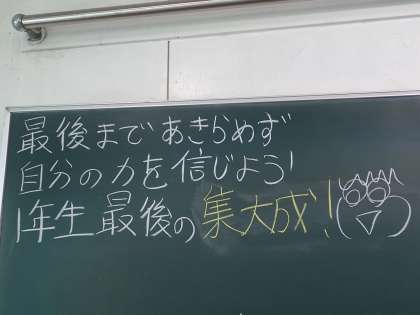 最後まであきらめず
自分の力を信じよう!
1年生最後の集大成!